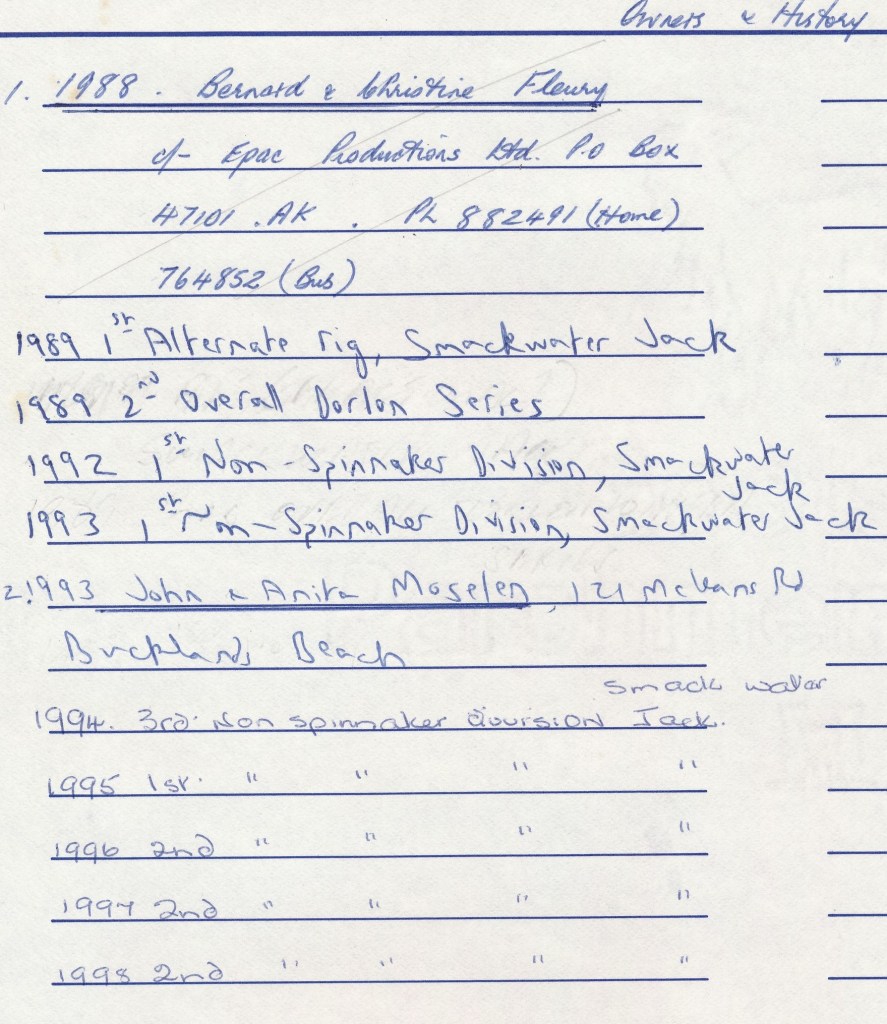 Owners & History
1. 1988. Bernard & Christine Fleury
c/- Epac Productions Ltd. P.O Box
47101. AK. Ph 882491 (Home)
764852 (Bus)
1989 1st Alternate rig, Smackwater Jack
1989 2nd Overall Dorlon Series
1992 1st Non-Spinnaker Division, Smackwater
Jack
1993 1st Non-Spinnaker Division, Smackwater Jack
2. 1993 John & Anita Moselen, 121 Mcleans Rd
Bucklands Beach
smack water
1994. 3rd. Non spinnaker division Jack.
1995 1st. " " " "
1996 2nd " " " "
1997 2nd " " " "
1998 2nd " " " "